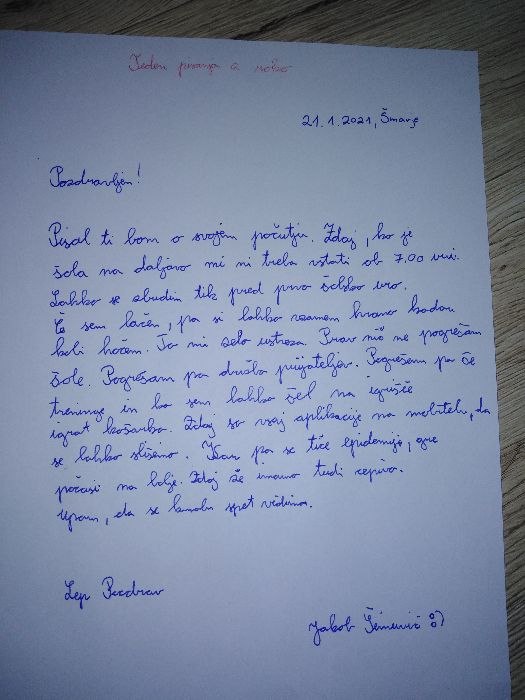 Teden pisanja z roko
21.1.2021, Šmarje
Pozdravljen!
Pisal ti bom o svojem počutju. Zdaj, ko je
šola na daljavo mi ni treba vstati ob 7.00 uri.
Lahko se zbudim tik pred prvo šolsko uro.
Če sem lačen, pa si lahko vzamem hrano kadar
koli hočem. To mi zelo ustreza. Prav nič ne pogrešam
šole. Pogrešam pa družbo prijateljev. Pogrešam pa še
treninge in ko sem lahko šel na igrišče
igrat košarko. Zdaj so vsaj aplikacije na mobitelu, da
se lahko slišimo. Kar pa se tiče epidemije, gre
počasi na bolje. Zdaj že imamo tudi cepivo.
Upam, da se kmalu spet vidimo.
Lep Pozdrav
Jakob